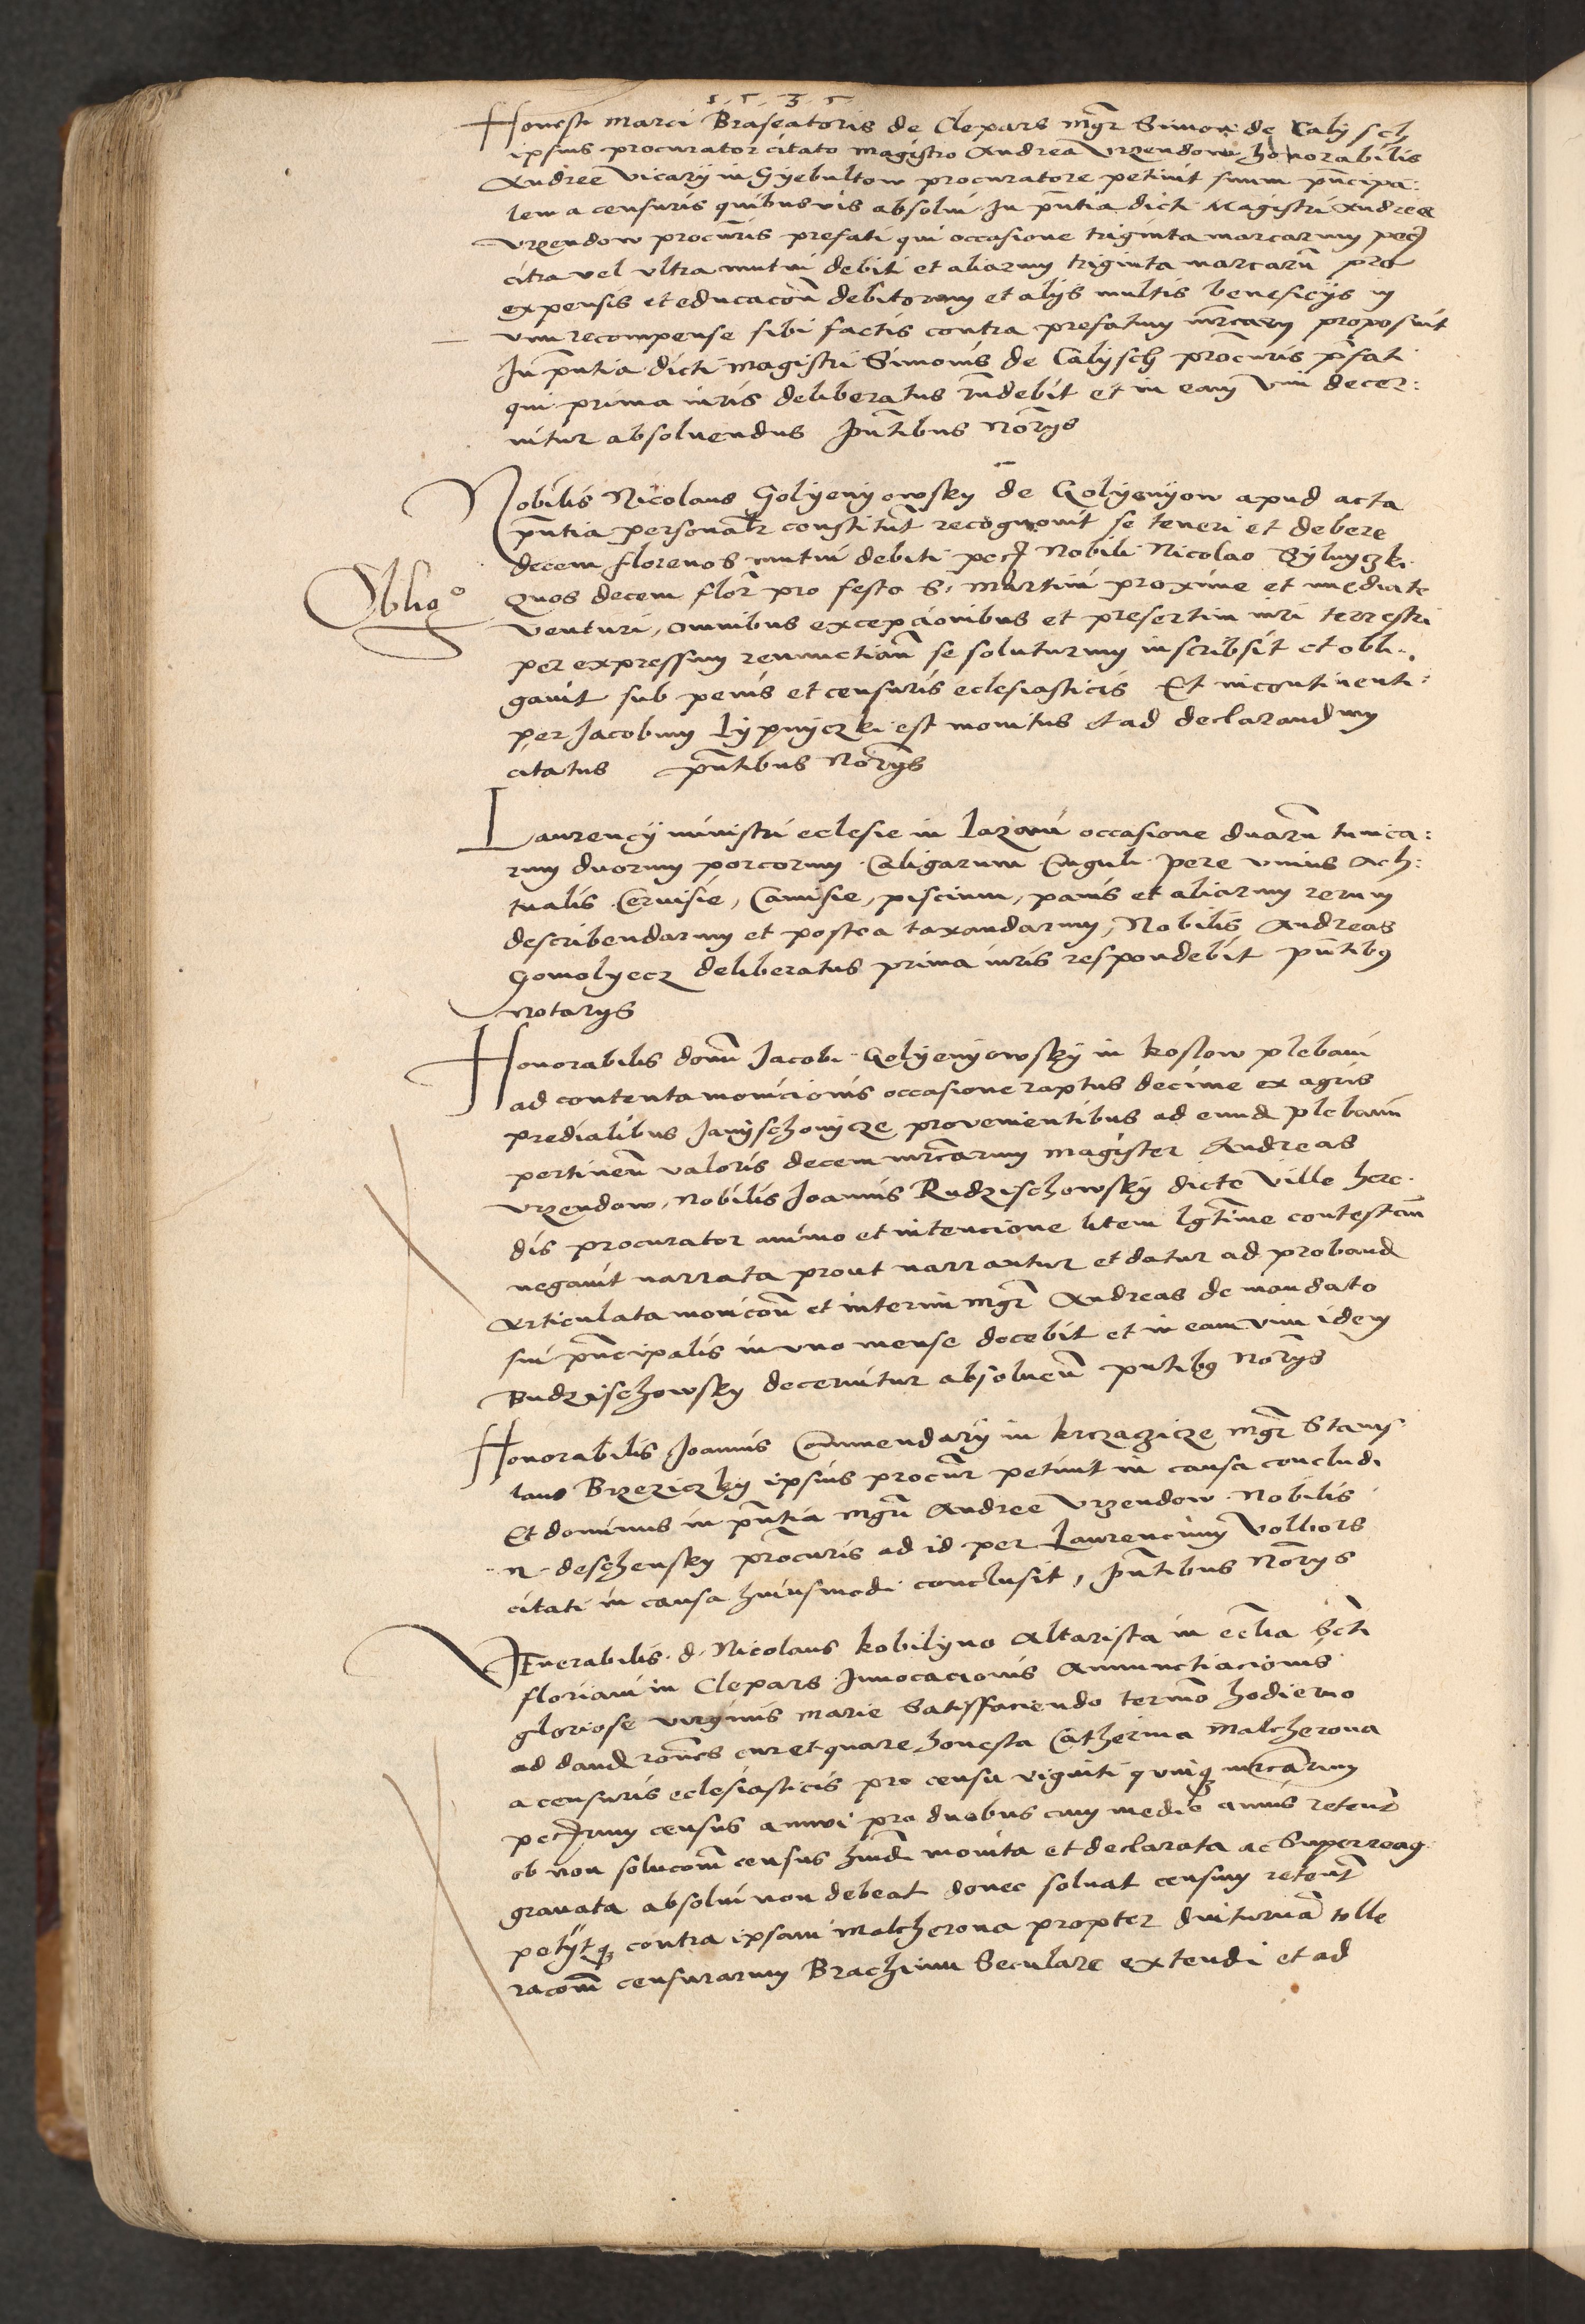 1 5 3 5
Honesti Marci Braseatoris de Clepars mgr Simon de Calysch
ipsius procurator citato magistro Andrea Vrzendow honorabilis
Andree vicary in Gyebultow procuratore petiuit suum pncipa:
lem a censuris quibusvis absolui In pntia dicti Magistri Andree
Vrzendow procuris prefati qui occasione triginta marcarum pec
citra vel vltra mutui debiti et aliarum triginta marcaru pro
expensis et educacon debitorum et alys multis beneficys in
vim recompense sibi factis contra prefatum marcum proposuit
In pntia dicti Magistri Simonis de Calysch procuris pfati
qui prima iuris deliberatus rndebit et in eam vim decer:
nitur absoluendus pntibus Norys
Nobilis Nicolaus Golyenyowsky de Golyenyow apud acta
pntia personalr constitut recognouit se teneri et debere
decem florenos mutui debiti pec Nobili Nicolao
Obligo
Quos decem flor pro festo S. Martini proxime et imediate
venturi, omnibus excepcionibus et presertim iuri terrestri
per expressum renunctian se soluturum inscribsit et obli-
gauit sub penis et censuris eclesiasticis Et incontinenti
per Jacobum Lypnyczki est monitus et ad declarandum
citatus pntibus Norys
Laurency ministri eclesie in occasione duaru tunica:
rum duorum porcorum Caligarum Cinguli pere vnius Ach:
tualis Ceruisie, Camisie, piscium, panis et aliarum rerum
describendarum et postea taxandarum, Nobilis Andreas
Gomolyecz deliberatus prima iuris respondebit pntibus
Notarys
Honorabilis domi Jacobi Golyenyowsky in Koslow plebani
ad contenta monicionis occasione raptus decime ex agris
predialibus provenientibus ad eund plebanu
pertinen valoris decem mrcarum Magister Andreas
Vrzendow, Nobilis Joannis Rudzischowsky dicte ville here-
dis procurator animo et intencione litem lgtime contestan
negauit narrata prout narrantur et datur ad proband
Articulata monicon et interim mgr Andreas de mandato
sui pncipalis in vno mense docebit et in eam vim idem
Budzischowsky decernitur absoluen pntibus Norys
Honorabilis Joannis Commendary in mgr Stanis
laus Brzeziczky ipsius procur petiuit in causa concludi
Et dominus in pntia mgri Andree Vrzendow Nobilis
N. deschensky procuris ad id per Laurencium Volbors
citati in causa huiusmodi conclusit, pntibus Norys
Venerabilis d. Nicolaus Kobilyno Altarista in eclia Scti
Floriani in Clepars Innocacionis Annunctiacionis
gloriose virginis Marie Satisfaciendo termo hodierno
ad dand rones cur et quare honesta Catherina Malcherowa
a censuris eclesiasticis pro censu viginti quinq mrcarum
pecrum census annui pro duobus cum medio annis retent
ob non solucom census huid monita et declarata ac Superreag
grauata absolui non debeat donec soluat censum retent
petytq contra ipsam Malcherowa propter diuturna tolle
racom censurarum Brachium Seculare extendi et ad